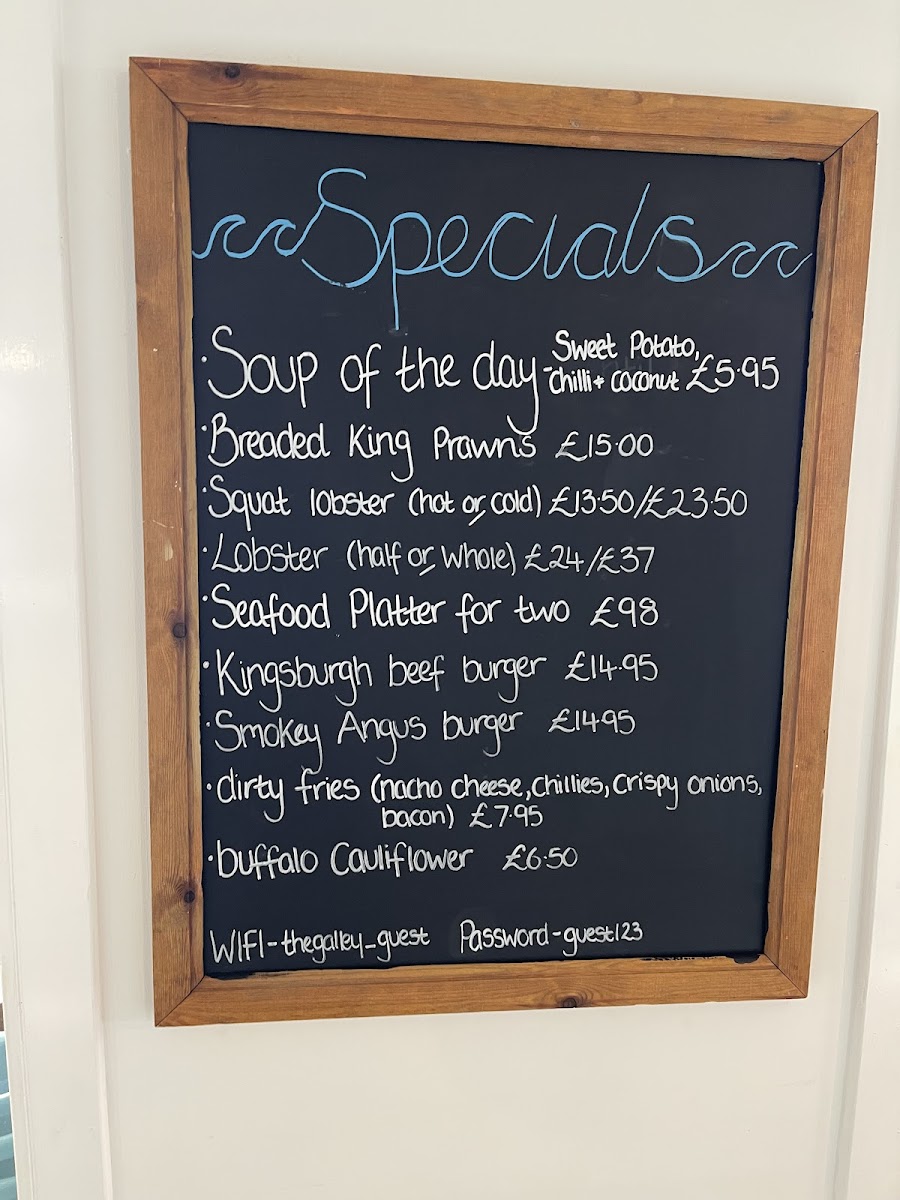 Specials
·Soup of the day - Sweet Potato,
chilli + coconut £5·95
·Breaded King Prawns £15·00
·Squat lobster (hot or cold) £13·50/£23·50
·Lobster (half or whole) £24/£37
·Seafood Platter for two £98
·Kingsburgh beef burger £14·95
·Smokey Angus burger £14·95
·dirty fries (nacho cheese, chillies, crispy onions,
bacon) £7·95
·buffalo Cauliflower £6·50
WIFI-thegalley_guest Password-guest123